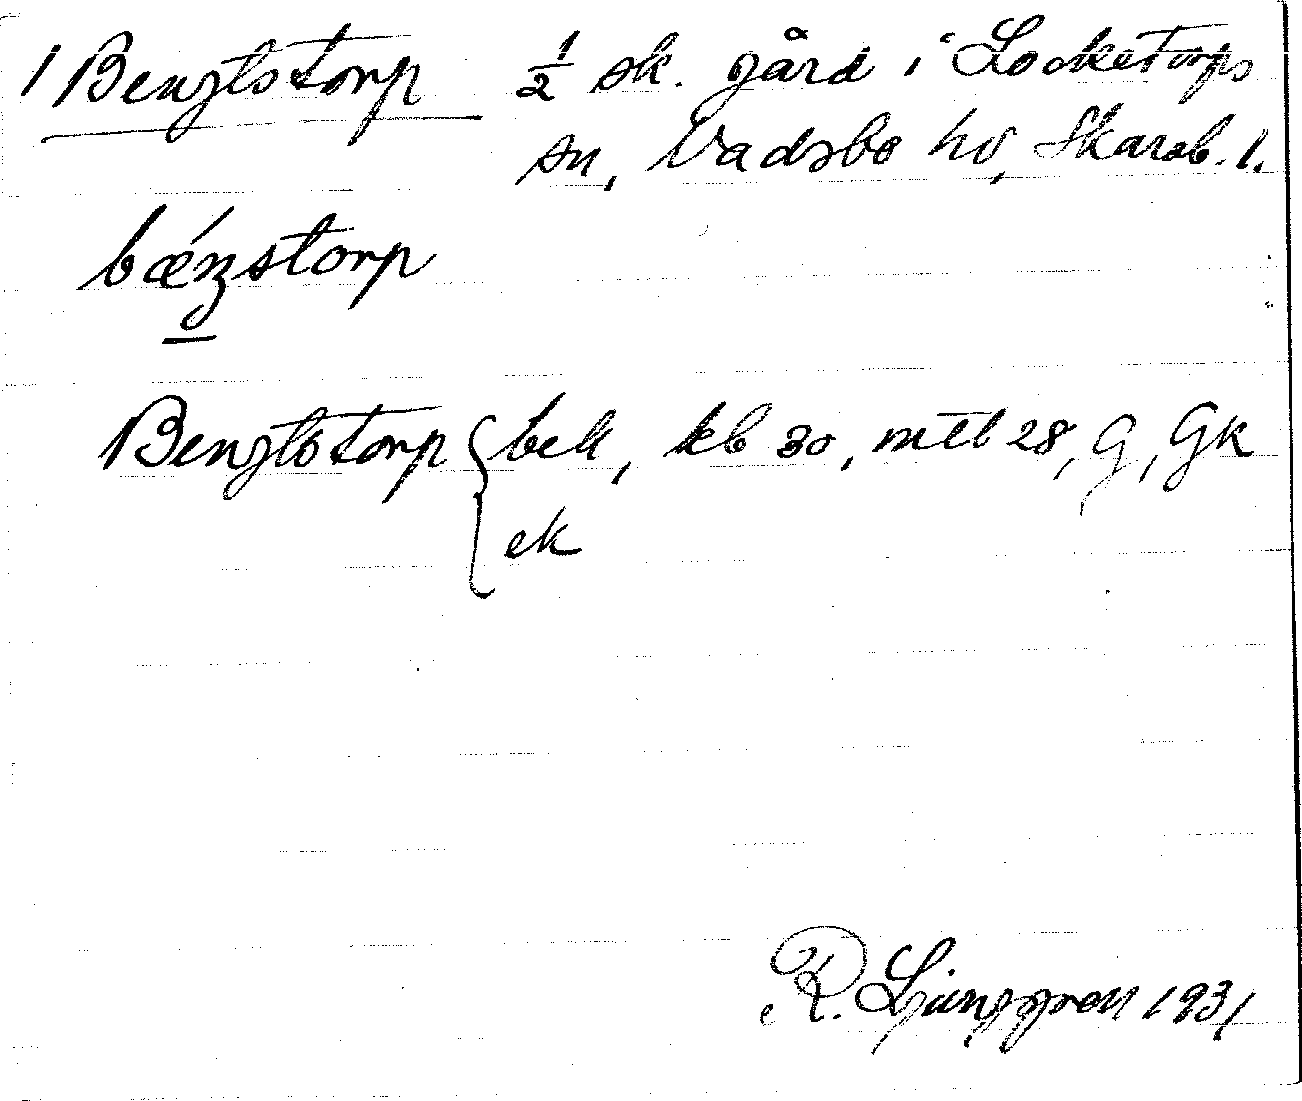 1 Bengtstorp ½ sk. gård i Locketorps
sn, Vadsbo hd, Skarab. l.
bǽŋstorp
Bengtstorp { bek, kb 30, mtl 28, G, GK
ek
R. Ljunggren 1931